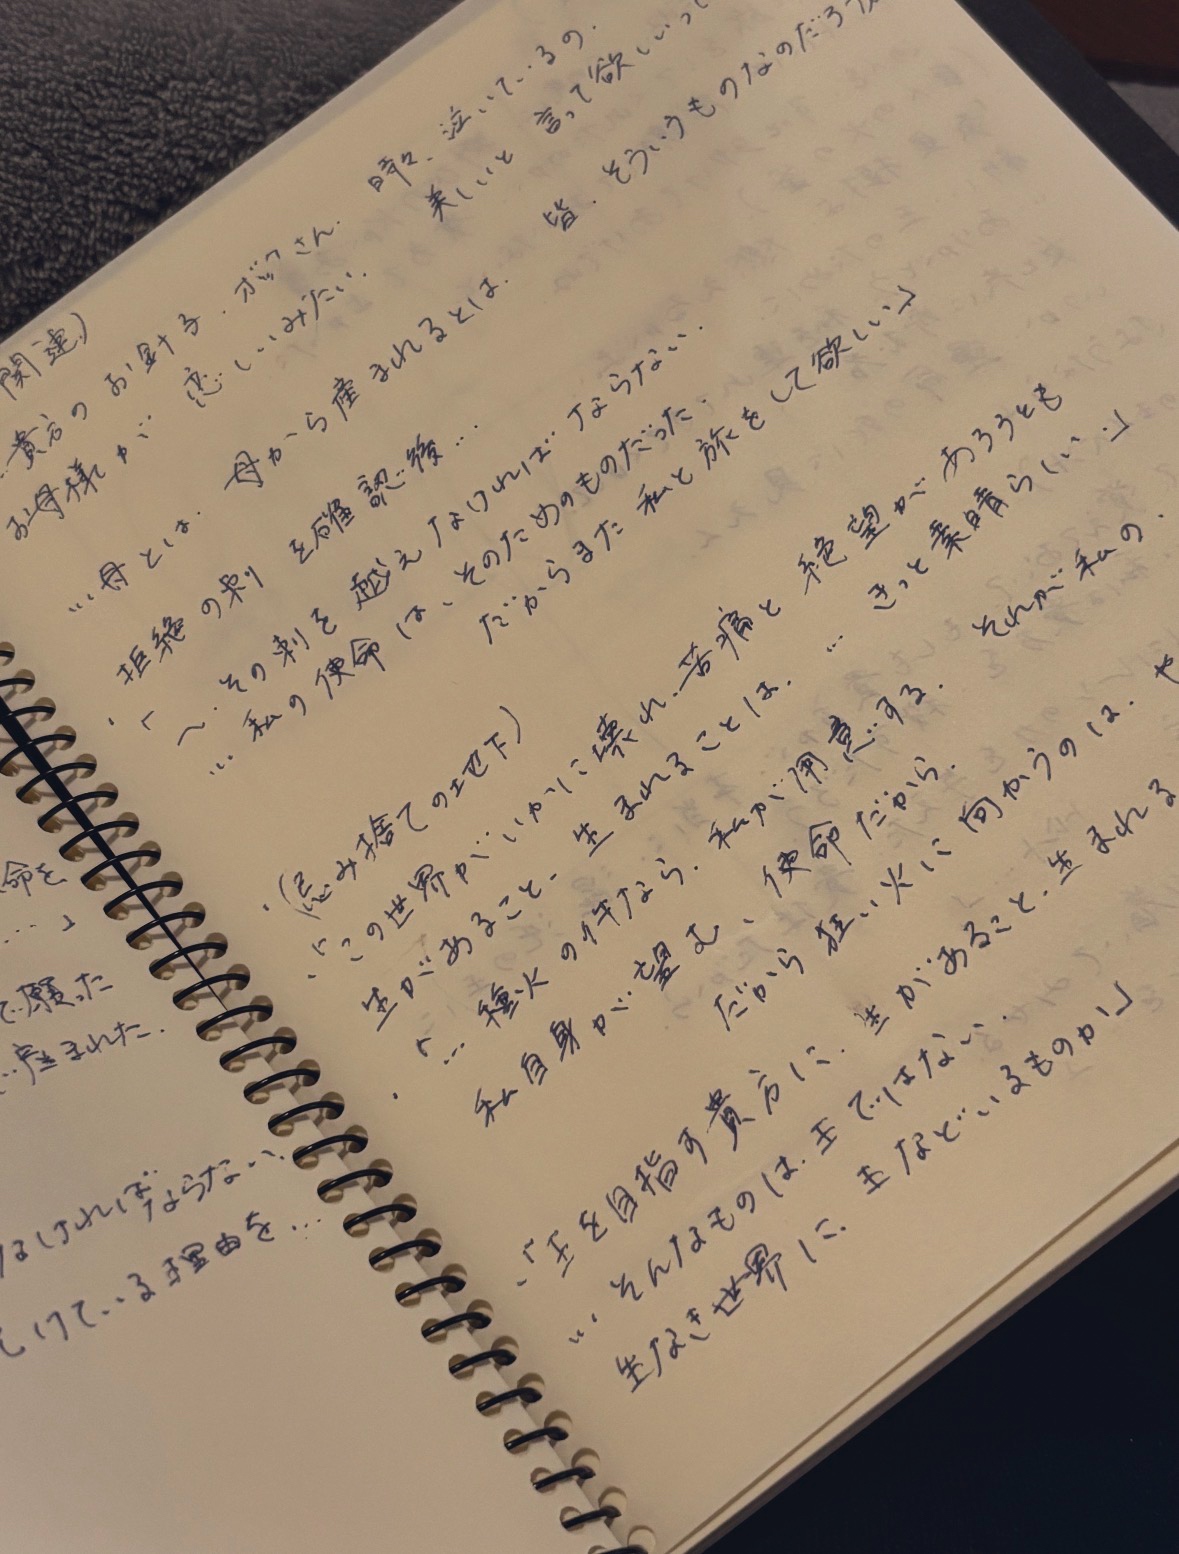 関連)
…貴方のお針子、ボックさん、時々、泣いているの。
お母様が恋しいみたい。美しいと言って欲しいって
…母とは、母から産まれるとは、皆、そういうものなのだろう
・拒絶の刺を確認後…
「…その刺を越えなければならない。
…私の使命は、そのためのものだった。
だからまた私と旅をして欲しい」
・(忌み捨ての地下)
・「この世界がいかに壊れ、苦痛と絶望があろうとも
生があること、生まれることは、…きっと素晴らしい。」
・「…種火の件なら、私が用意する。それが私の、
私自身が望む、使命だから。
だから狂い火に向かうのは、や
・「王を目指す貴方に、生があること、生まれる
…そんなものは、王ではない。
生なき世界に、王などいるものか」
命を
…」
で願った
産まれた。
なければならない、
けている理由を…